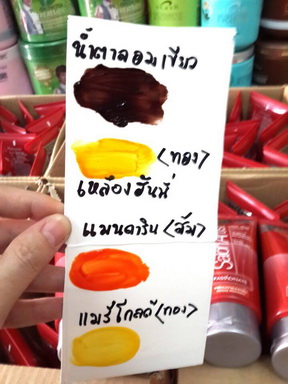 น้ำตาลอมเขียว
(ทอง)
เหลืองฮันนี่
แมนดาริน (ส้ม)
แมรี่โกลด์ (ทอง)